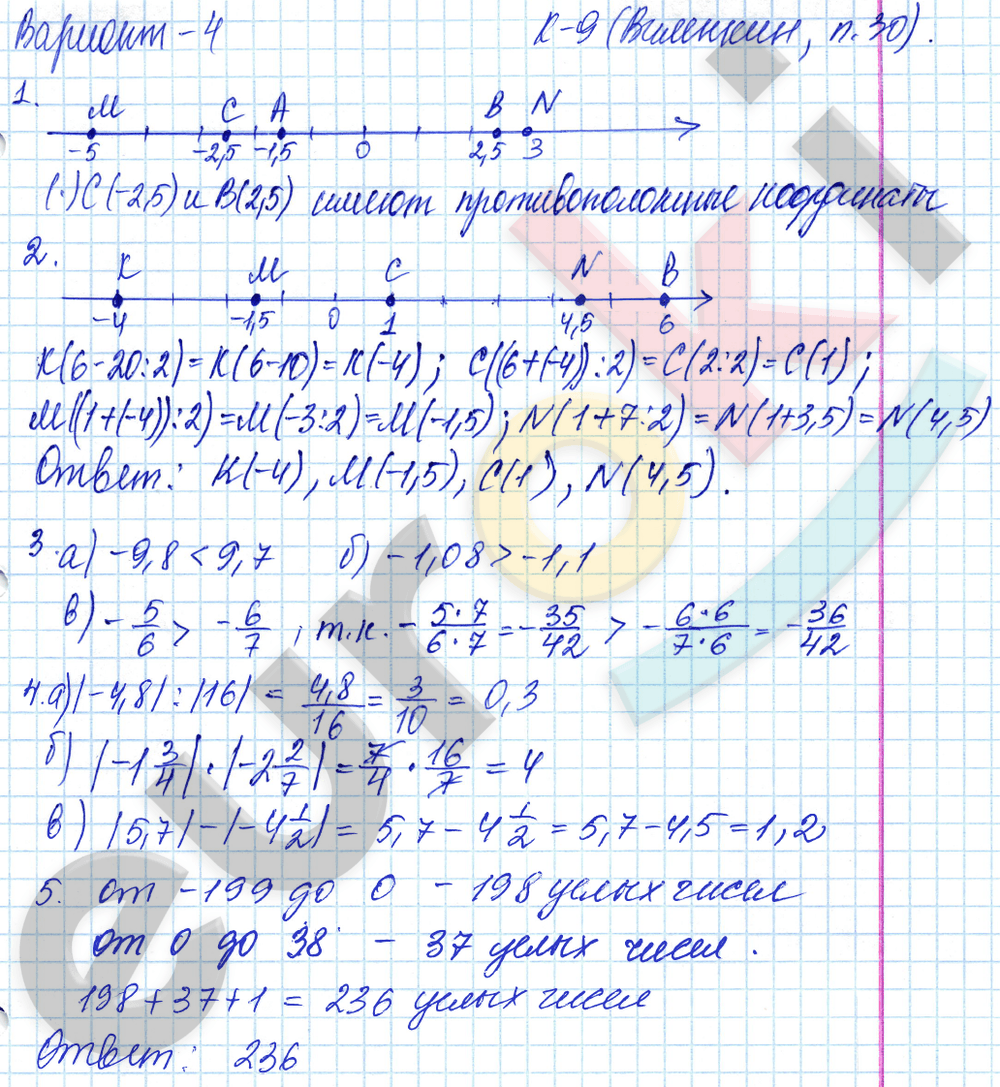 Вариант-4 К-9 (Виленкин, п. 30).
1.
М С А В N
-5 -2,5 -1,5 0 2,5 3
(·) С(-2,5) и В(2,5) имеют противоположные координаты
2.
К М С N В
-4 -1,5 0 1 4,5 6
К(6-20:2)=К(6-10)=К(-4); С((6+(-4)):2)=С(2:2)=С(1);
М((1+(-4)):2)=М(-3:2)=М(-1,5); N(1+7:2)=N(1+3,5)=N(4,5)
Ответ: К(-4), М(-1,5), С(1), N(4,5).
3.а) -9,8 < 9,7 б) -1,08 > -1,1
в) -5/6 > -6/7, т.к. -5·7/6·7 = -35/42 > -6·6/7·6 = -36/42
4.а) |-4,8| : |16| = 4,8/16 = 3/10 = 0,3
б) |-1 3/4| · |-2 2/7| = 7/4 · 16/7 = 4
в) |5,7| - |-4 1/2| = 5,7 - 4 1/2 = 5,7 - 4,5 = 1,2
5. от -199 до 0 - 198 целых чисел
от 0 до 38 - 37 целых чисел.
198 + 37 + 1 = 236 целых чисел
Ответ: 236
euroki